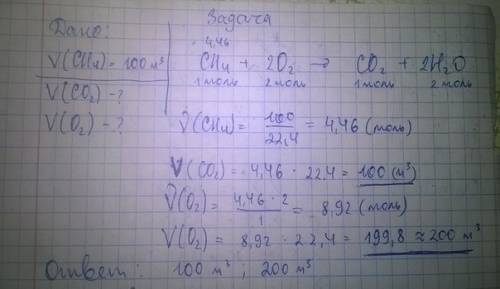 Задача
Дано:
V(CH₄) = 100 м³
V(CO₂) - ?
V(O₂) - ?
4,46
CH₄ + 2O₂ → CO₂ + 2H₂O
1 моль 2 моль 1 моль 2 моль
ν(CH₄) = 100/22,4 = 4,46 (моль)
V(CO₂) = 4,46 · 22,4 = 100 (м³)
ν(O₂) = 4,46 · 2/1 = 8,92 (моль)
V(O₂) = 8,92 · 22,4 = 199,8 ≈ 200 м³
Ответ: 100 м³ ; 200 м³